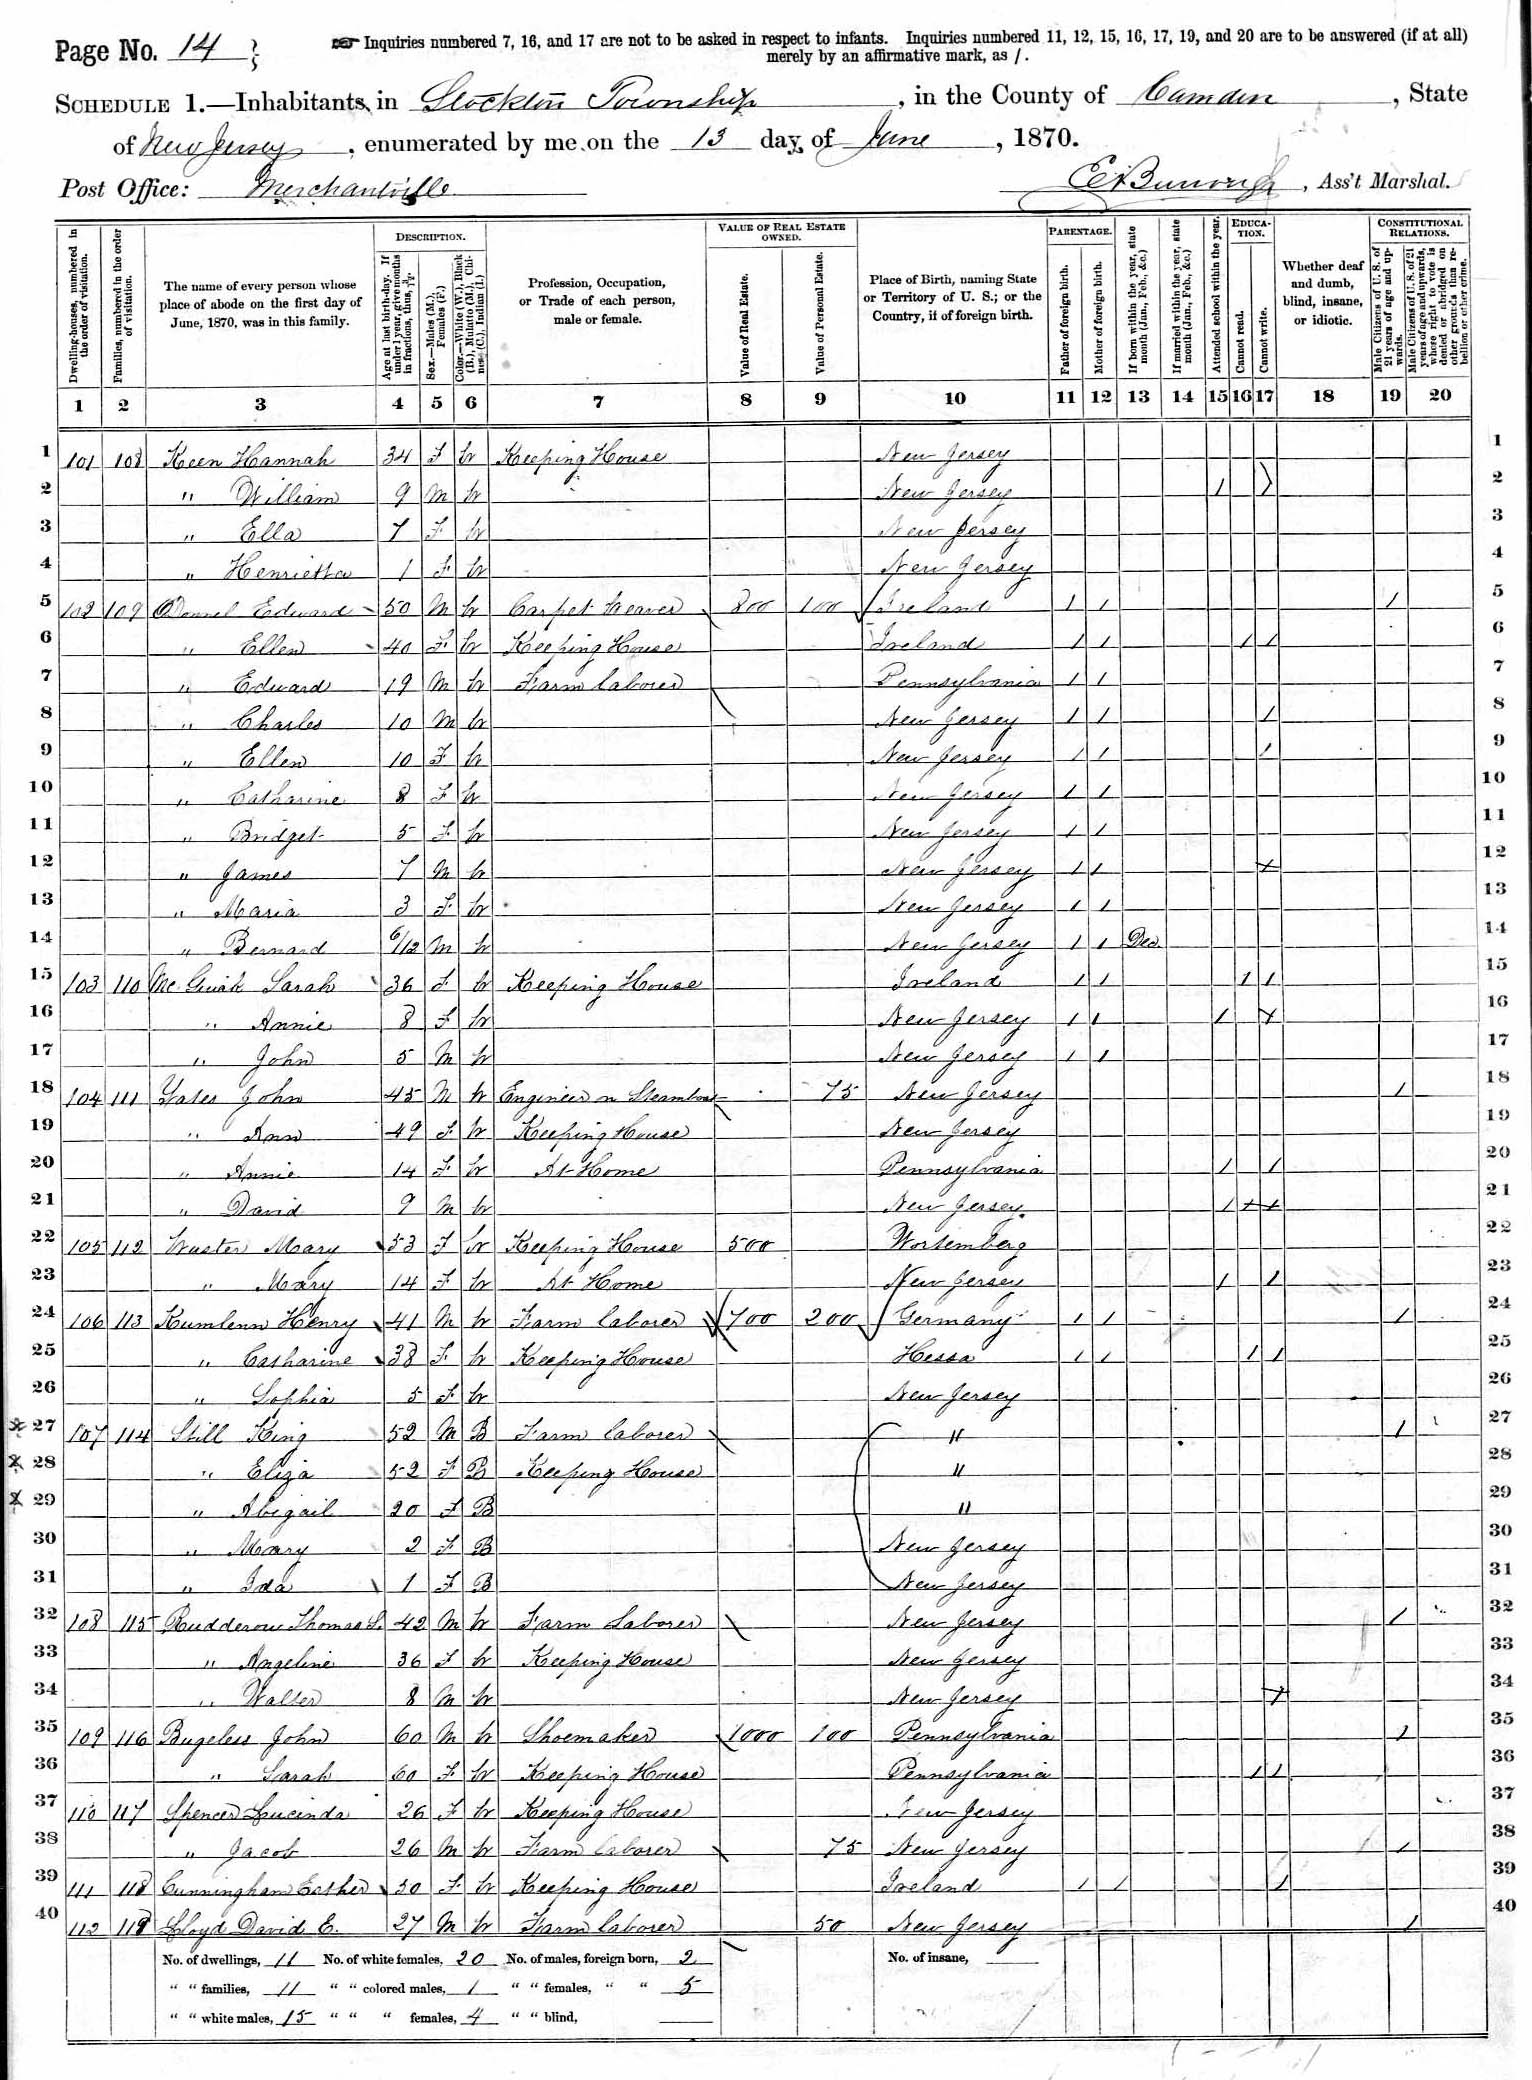 Page No. 14
Inquiries numbered 7, 16, and 17 are not to be asked in respect to infants. Inquiries numbered 11, 12, 15, 16, 17, 19, and 20 are to be answered (if at all)
merely by an affirmative mark, as /.
SCHEDULE 1.—Inhabitants in Stockton Township, in the County of Camden, State
of New Jersey, enumerated by me on the 13 day of June, 1870.
Post Office: Merchantville
EA Burrough, Ass't Marshal.
Dwelling-houses, numbered in the order of visitation.
Families, numbered in the order of visitation.
The name of every person whose place of abode on the first day of June, 1870, was in this family.
DESCRIPTION.
Age at last birth-day. If under 1 year, give months in fractions, thus, 3/12.
Sex.—Males (M.), Females (F.)
Color.—White (W.), Black (B.), Mulatto (M.), Chinese (C.), Indian (I.)
Profession, Occupation, or Trade of each person, male or female.
VALUE OF REAL ESTATE OWNED.
Value of Real Estate.
Value of Personal Estate.
Place of Birth, naming State or Territory of U. S.; or the Country, if of foreign birth.
PARENTAGE.
Father of foreign birth.
Mother of foreign birth.
If born within the year, state month (Jan., Feb., &c.)
If married within the year, state month (Jan., Feb., &c.)
Attended school within the year.
EDUCATION.
Cannot read.
Cannot write.
Whether deaf and dumb, blind, insane, or idiotic.
CONSTITUTIONAL RELATIONS.
Male Citizens of U. S. of 21 years of age and upwards.
Male Citizens of U. S. of 21 years of age and upwards, whose right to vote is denied or abridged on other grounds than rebellion or other crime.
1 2 3 4 5 6 7 8 9 10 11 12 13 14 15 16 17 18 19 20
1 101 108 Keen Hannah 34 F W Keeping House New Jersey 1
2 " William 9 M W New Jersey / / 2
3 " Ella 7 F W New Jersey 3
4 " Henrietta 1 F W New Jersey 4
5 102 109 O'Donnel Edward 50 M W Carpet Weaver 800 100 Ireland / / / 5
6 " Ellen 40 F W Keeping House Ireland / / / / 6
7 " Edward 19 M W Farm laborer Pennsylvania / / 7
8 " Charles 10 M W New Jersey / / / 8
9 " Ellen 10 F W New Jersey / / / 9
10 " Catharine 8 F W New Jersey / / 10
11 " Bridget 5 F W New Jersey / / 11
12 " James 7 M W New Jersey / / / 12
13 " Maria 3 F W New Jersey / / 13
14 " Bernard 6/12 M W New Jersey / / Dec 14
15 103 110 Mc Guirk Sarah 36 F W Keeping House Ireland / / / / 15
16 " Annie 8 F W New Jersey / / / / 16
17 " John 5 M W New Jersey / / 17
18 104 111 Yates John 45 M W Engineer on Steamboat 75 New Jersey / 18
19 " Ann 49 F W Keeping House New Jersey 19
20 " Annie 14 F W At Home Pennsylvania / / 20
21 " David 9 M W New Jersey / / / 21
22 105 112 Wuster Mary 53 F W Keeping House 500 Wortemberg 22
23 " Mary 14 F W At Home New Jersey / / 23
24 106 113 Kumlenn Henry 41 M W Farm laborer 700 200 Germany / / / 24
25 " Catharine 38 F W Keeping House Hessa / / / / 25
26 " Sophia 5 F W New Jersey 26
27 107 114 Still King 52 M B Farm laborer " / 27
28 " Eliza 52 F B Keeping House " 28
29 " Abigail 20 F B " 29
30 " Mary 2 F B New Jersey 30
31 " Ida 1 F B New Jersey 31
32 108 115 Rudderow Thomas S. 42 M W Farm Laborer New Jersey / 32
33 " Angeline 36 F W Keeping House New Jersey 33
34 " Walter 8 M W New Jersey / 34
35 109 116 Bugeless John 60 M W Shoemaker 1000 100 Pennsylvania / 35
36 " Sarah 60 F W Keeping House Pennsylvania / / 36
37 110 117 Spencer Lucinda 26 F W Keeping House New Jersey 37
38 " Jacob 26 M W Farm laborer 75 New Jersey / 38
39 111 118 Cunningham Esther 50 F W Keeping House Ireland / / / 39
40 112 119 Lloyd David E. 27 M W Farm laborer 50 New Jersey / 40
No. of dwellings, 11 No. of white females, 20 No. of males, foreign born, 2 No. of insane,
" " families, 11 " " colored males, 1 " " females, " " 5
" " white males, 15 " " " females, 4 " " blind,